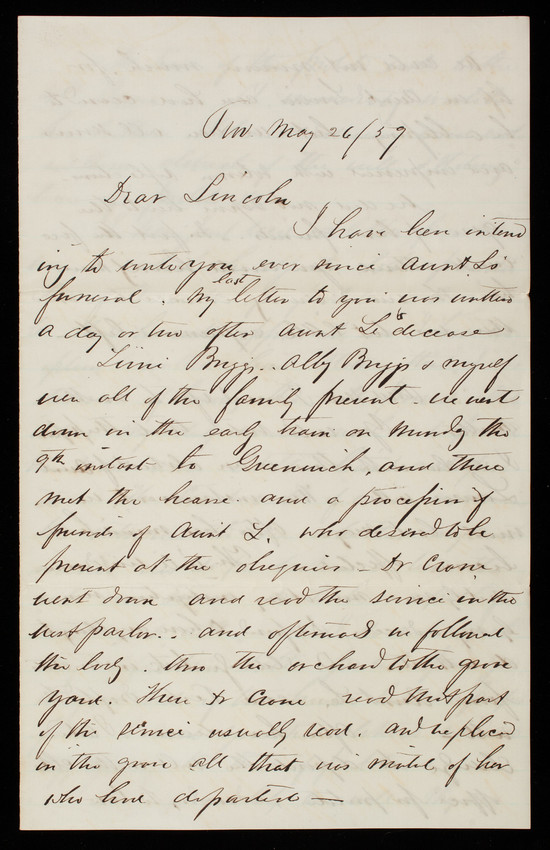 May 26/59
Dear Lincoln
I have been intend
ing to write you ever since Aunt L's
funeral. My last letter to you was written
a day or two after Aunt L's decease
Briggs.. Abby Briggs & myself
were all of the family present. we went
down in the early train on Monday the
9th instant to Greenwich, and there
met the hearse and a procession of
friends of Aunt L. who desired to be
present at the obsequies – Dr Crane
went down and read the service in the
west parlor.. and afterward we followed
the body. thro the orchard to the grave
yard. There Dr Crane read that part
of the service usually read. and we placed
in the grave all that was mortal of her
who had departed —